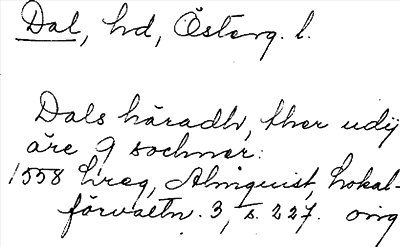 Dal, hd, Österg. l.
Dals häradh, ther udij
äre 9 sochner:
1558 Lreg, Almquist, Lokal-
förvaltn. 3, s. 227. orig